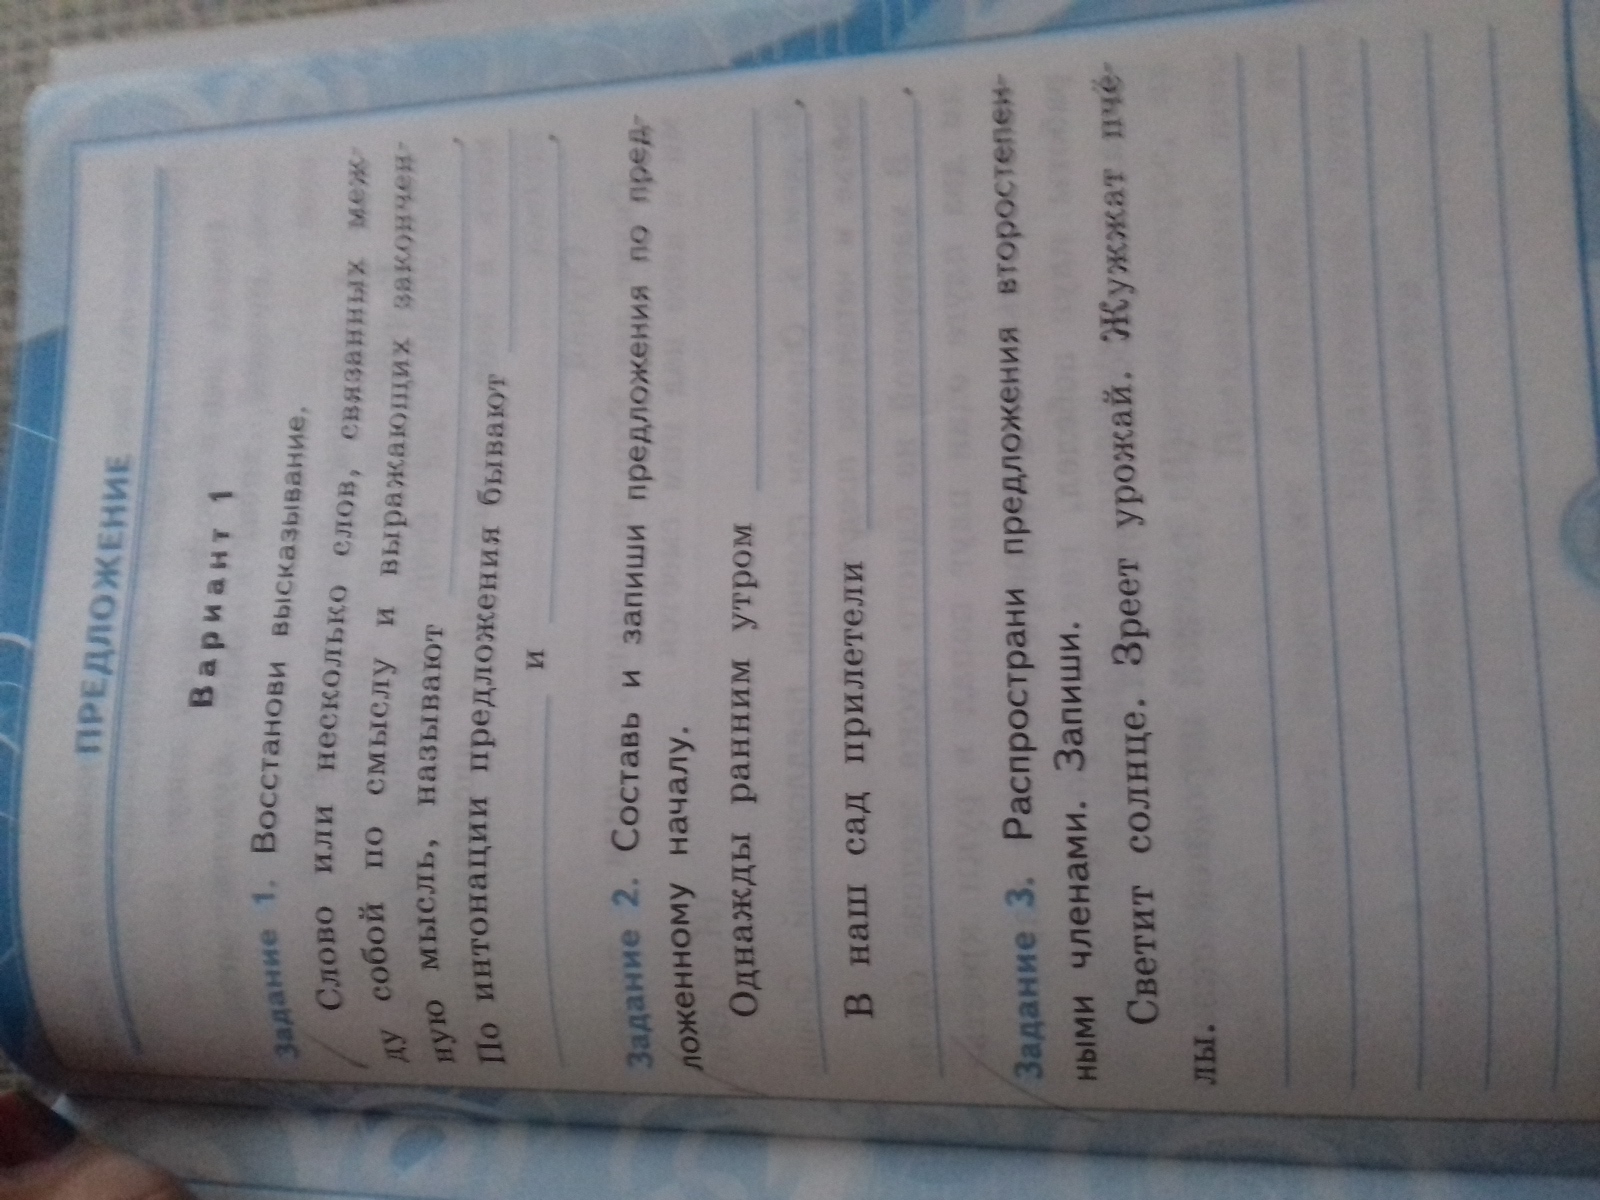 ПРЕДЛОЖЕНИЕ
Вариант 1
Задание 1. Восстанови высказывание.
Слово или несколько слов, связанных меж-
ду собой по смыслу и выражающих закончен-
ную мысль, называют ,
По интонации предложения бывают
и ,
Задание 2. Составь и запиши предложения по пред-
ложенному началу.
Однажды ранним утром
,
В наш сад прилетели
,
Задание 3. Распространи предложения второстепен-
ными членами. Запиши.
Светит солнце. Зреет урожай. Жужжат пчё-
лы.